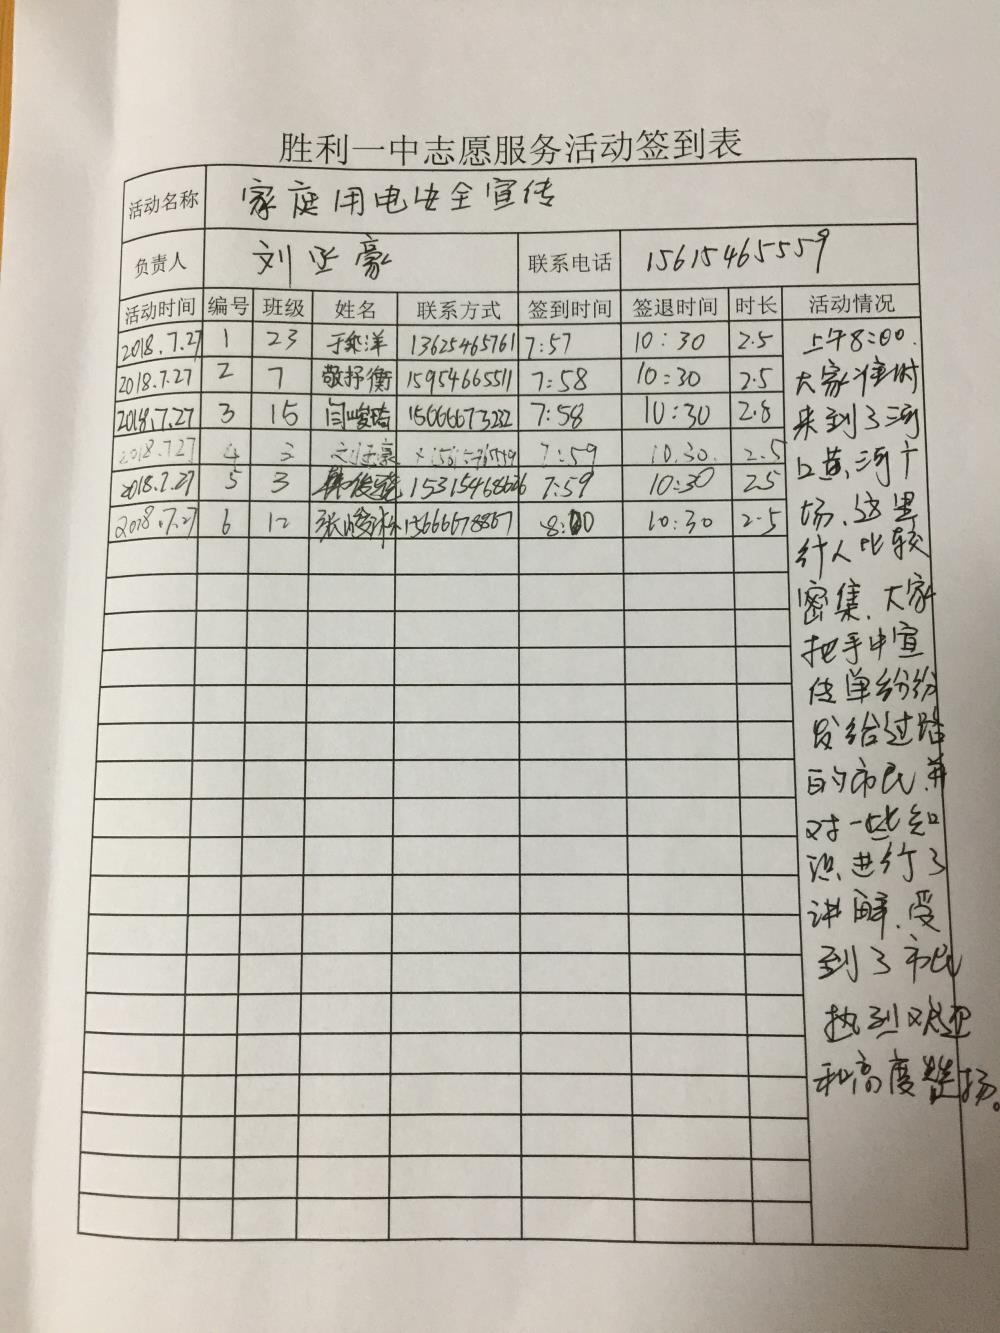 胜利一中志愿服务活动签到表
活动名称 家庭用电安全宣传
负责人 刘丞豪 联系电话 15615465559
活动时间 编号 班级 姓名 联系方式 签到时间 签退时间 时长 活动情况
2018.7.27 1 23 于乘洋 13625465761 7:57 10:30 2.5
2018.7.27 2 7 敬抒衡 15954665511 7:58 10:30 2.5
2018.7.27 3 15 15666673232 7:58 10:30 2.5
2018.7.27 4 3 刘丞豪 7:59 10:30. 2.5
2018.7.27 5 3 7:59 10:30 2.5
2018.7.27 6 12 15666678867 8:00 10:30 2.5
上午8:00.
大家准时
来到了河
口黄河广
场,这里
行人比较
密集,大家
把手中宣
传单纷纷
发给过路
的市民,并
对一些知
识进行了
讲解,受
到了市民
热烈欢迎
和高度赞扬。